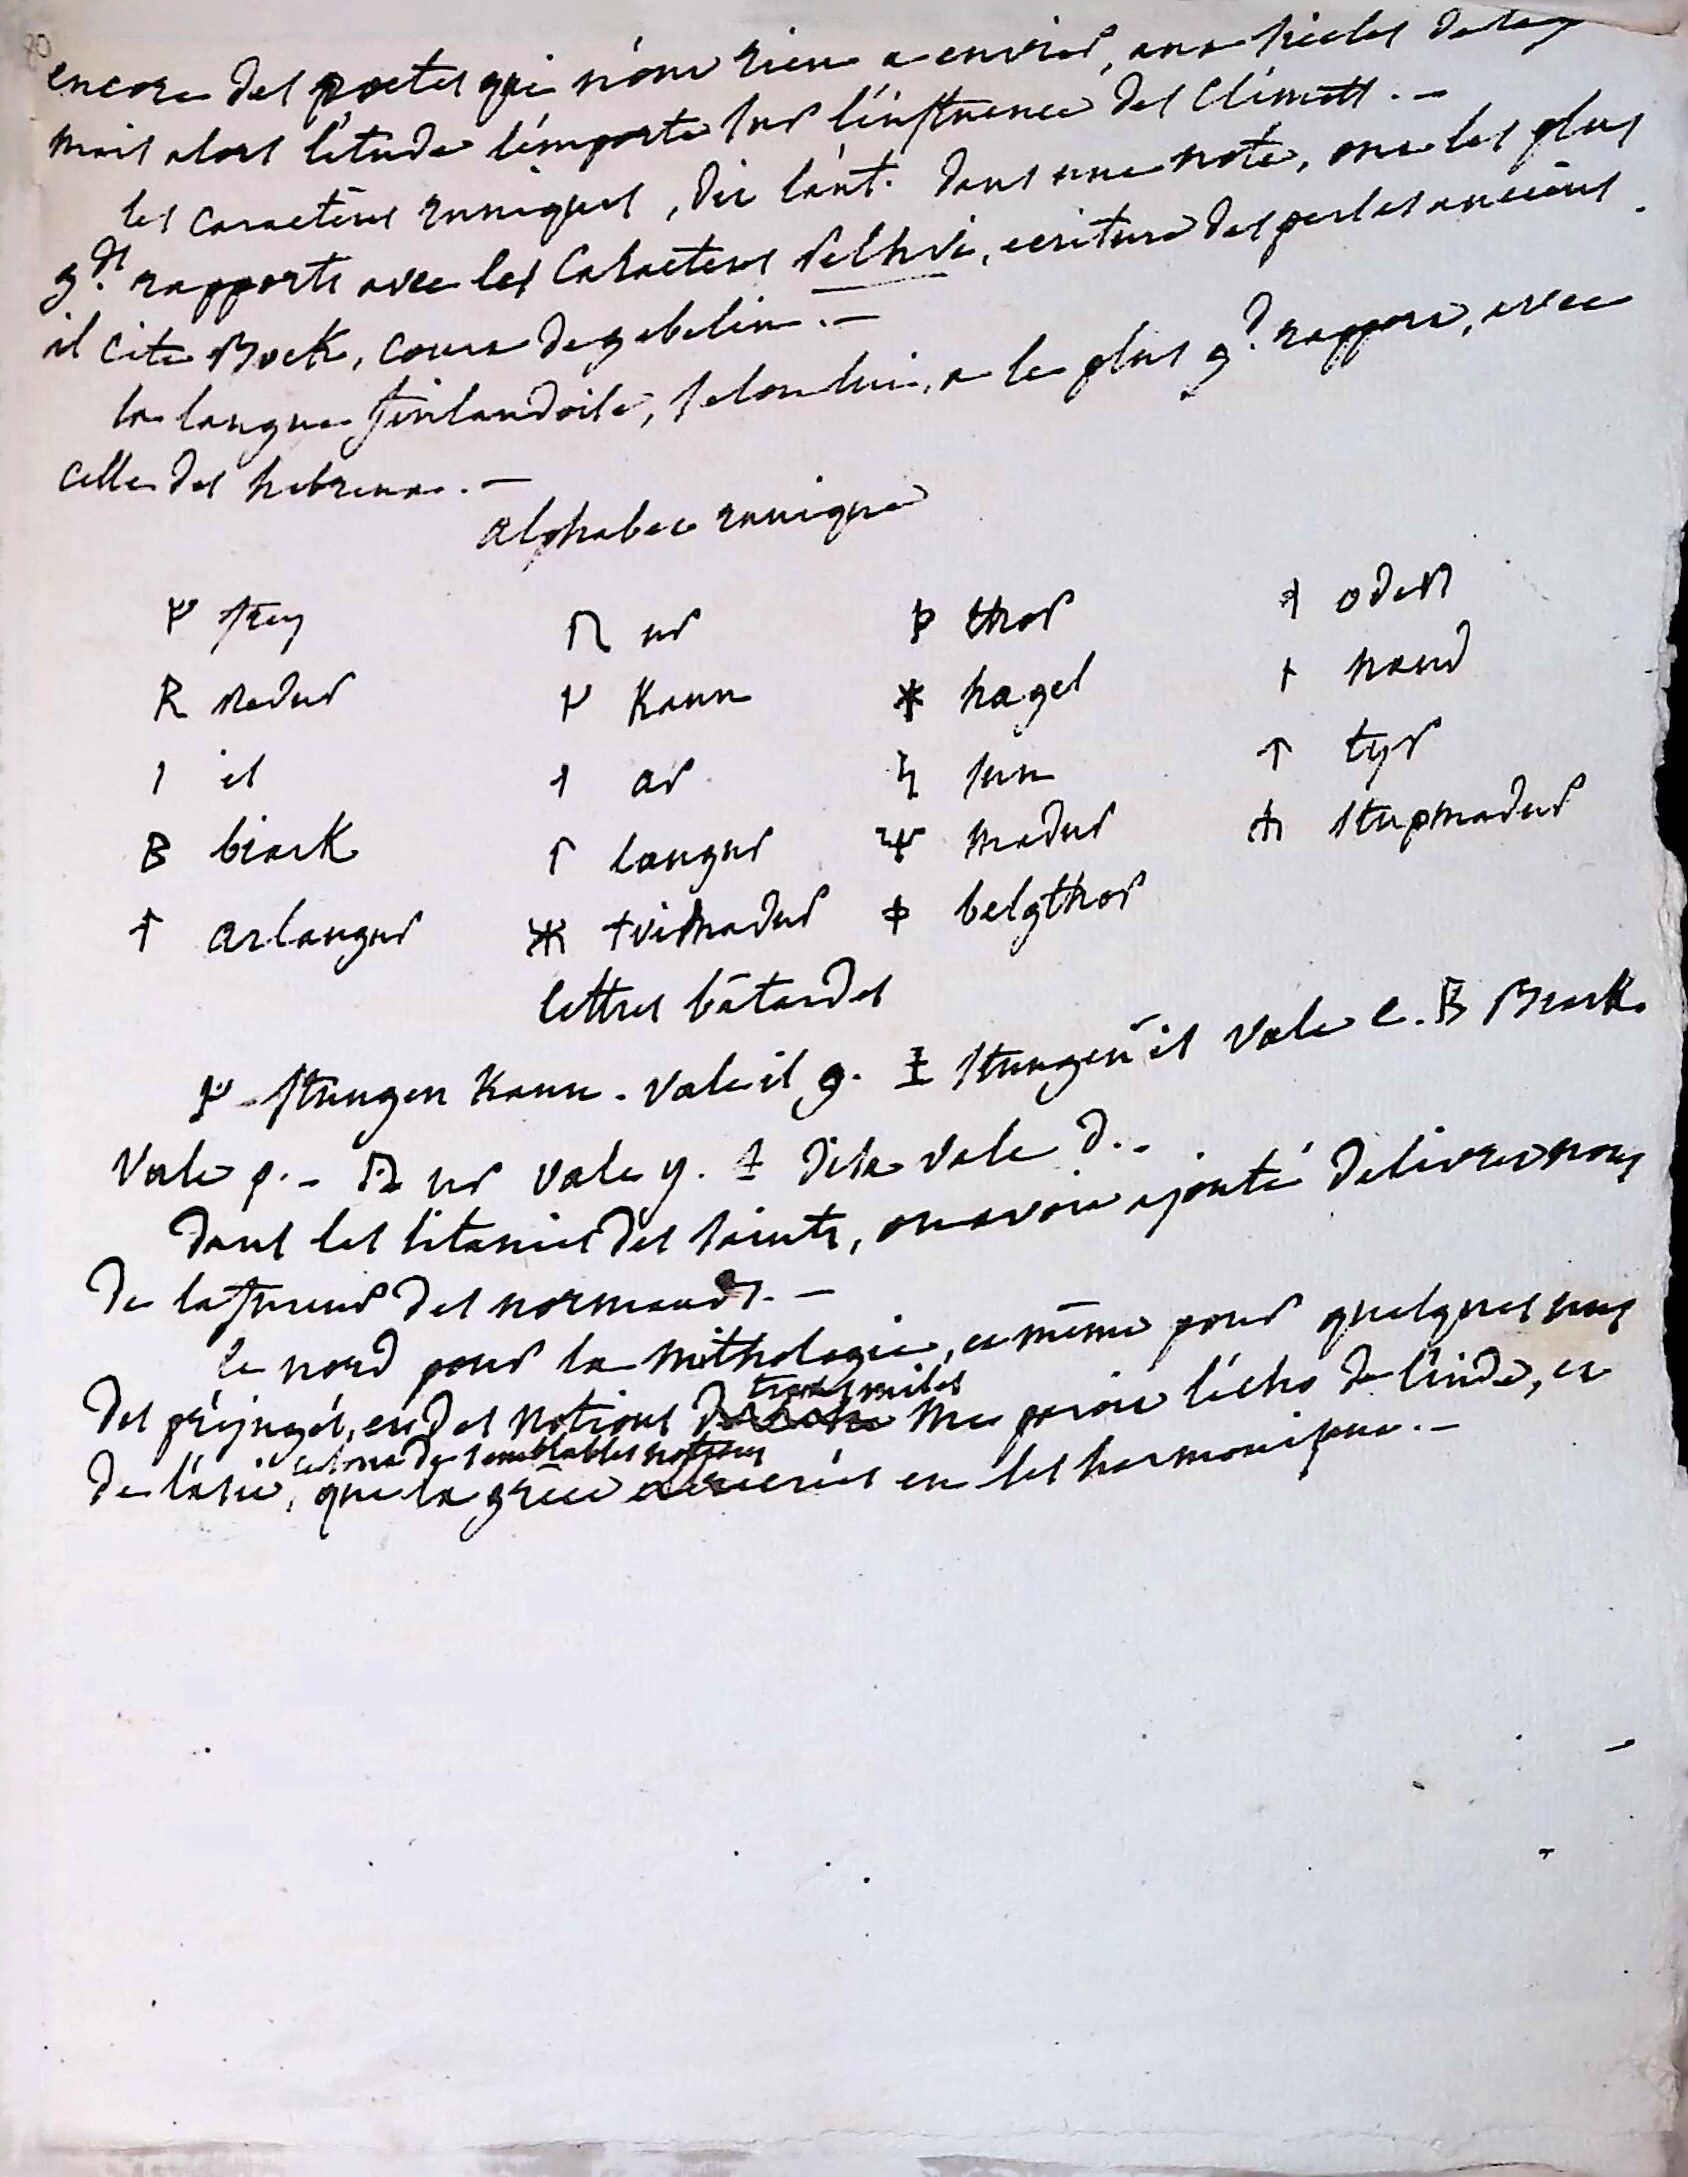 encore des poetes qui n'ont rien a envier, aux siecles
mais alors l'etude l'emporte sur l'influence des climats. -
les caracteres runiques, dit l'aut. dans une note, ont les plus
g.ds rapports avec les caracteres pelhvi, ecriture des perses anciens.
il cite Bock, court de gebelin. -
la langue finlandoise, selon lui, a le plus g.d rapport, avec
celle des hebreux. -
alphabet runique
ᚠ frey ᚢ ur ᚦ thor ᚬ oder
R redur ᚴ Kaun ᚼ hagel ᚾ naud
ᛁ is ᛅ ar ᛋ sun ᛏ tyr
B biark ᛚ laugur ᛘ madur stupmadur
arlaugur tvimadur belgthor
lettres bâtardes
stungen Kaun. vale il g. stungen is vale e. B Biark
vale p. - ur vale y. vale d. -
dans les litanies des saints, on avoit ajouté delivrez nous
de la fureur des normands. -
le nord pour la mithologie, et même pour quelques uns
des préjugés, et des notions me paroit l'echo de l'inde, et
transmises
de l'asie, que la grèce en les harmonisant. -
de semblables notions